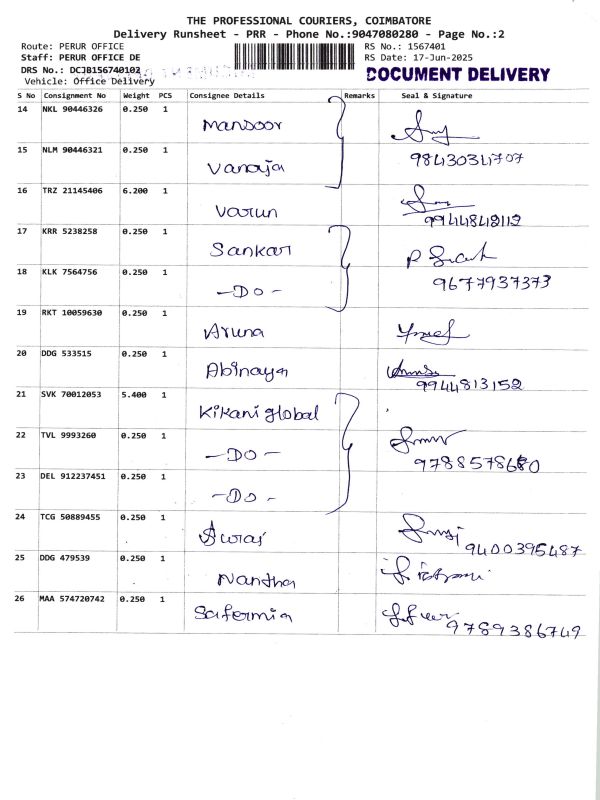 THE PROFESSIONAL COURIERS, COIMBATORE
Delivery Runsheet - PRR - Phone No.:9047080280 - Page No.:2
Route: PERUR OFFICE RS No.: 1567401
Staff: PERUR OFFICE DE RS Date: 17-Jun-2025
DRS No.: DCJB156740102 DOCUMENT DELIVERY
Vehicle: Office Delivery
S No Consignment No Weight PCS Consignee Details Remarks Seal & Signature
14 NKL 90446326 0.250 1 Mansoor
15 NLM 90446321 0.250 1 Vanaja 9843034707
16 TRZ 21145406 6.200 1 Varun 9944848112
17 KRR 5238258 0.250 1 Sankar
18 KLK 7564756 0.250 1 -DO- 9677937373
19 RKT 10059630 0.250 1 Aruna
20 DDG 533515 0.250 1 Abinaya 9944813152
21 SVK 70012053 5.400 1 Kikani global
22 TVL 9993260 0.250 1 -DO- 9788578680
23 DEL 912237451 0.250 1 -DO-
24 TCG 50889455 0.250 1 9400395487
25 DDG 479539 0.250 1 Nantha
26 MAA 574720742 0.250 1 Safermia 9789386749